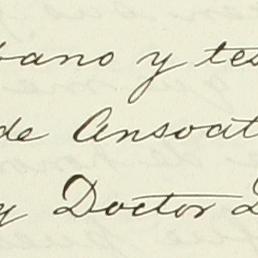 bano y tes
de Ansoat
y Doctor D